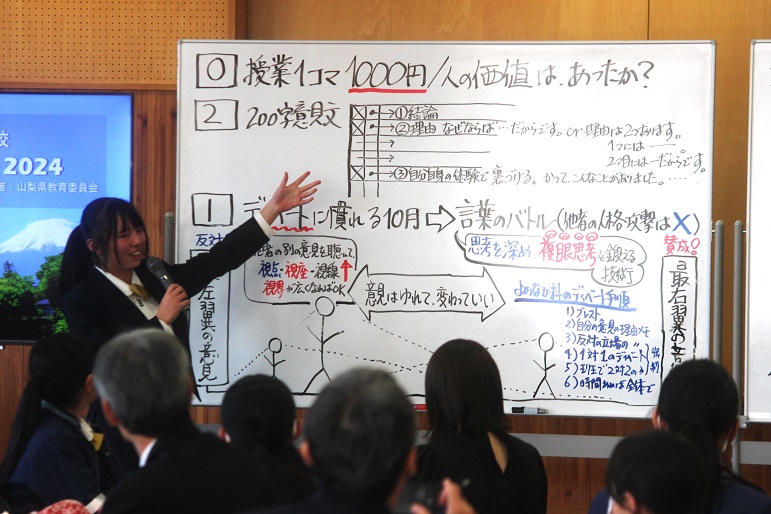 校
2024
催：山梨県教育委員会
0 授業1コマ 1000円/人の価値は、あったか？
2 200字意見文
→①結論
→②理由 なぜならば…だからです。or 理由は2つあります。
1つには——。
2つ目には—だからです。
→③自分自身の体験で裏づける。かつて、こんなことがありました。……
1 ディベートに慣れる10月⇨言葉のバトル(他者の人格攻撃は×)
反対
者の別の意見を聴いて、
視点・視座・視線↑
視界が広くなればOK
思考を深め、複眼思考を鍛える
技術
賛成！
左翼の意見
意見はゆれて、変わっていい
よのなか科のディベート手順
1) ブレスト
2) 自分の意見の理由メモ
3) 反対の立場の 〃
4) 1対1のディベート
5) 班で2対2の〃
6) 時間あれば全体で
最右翼の意